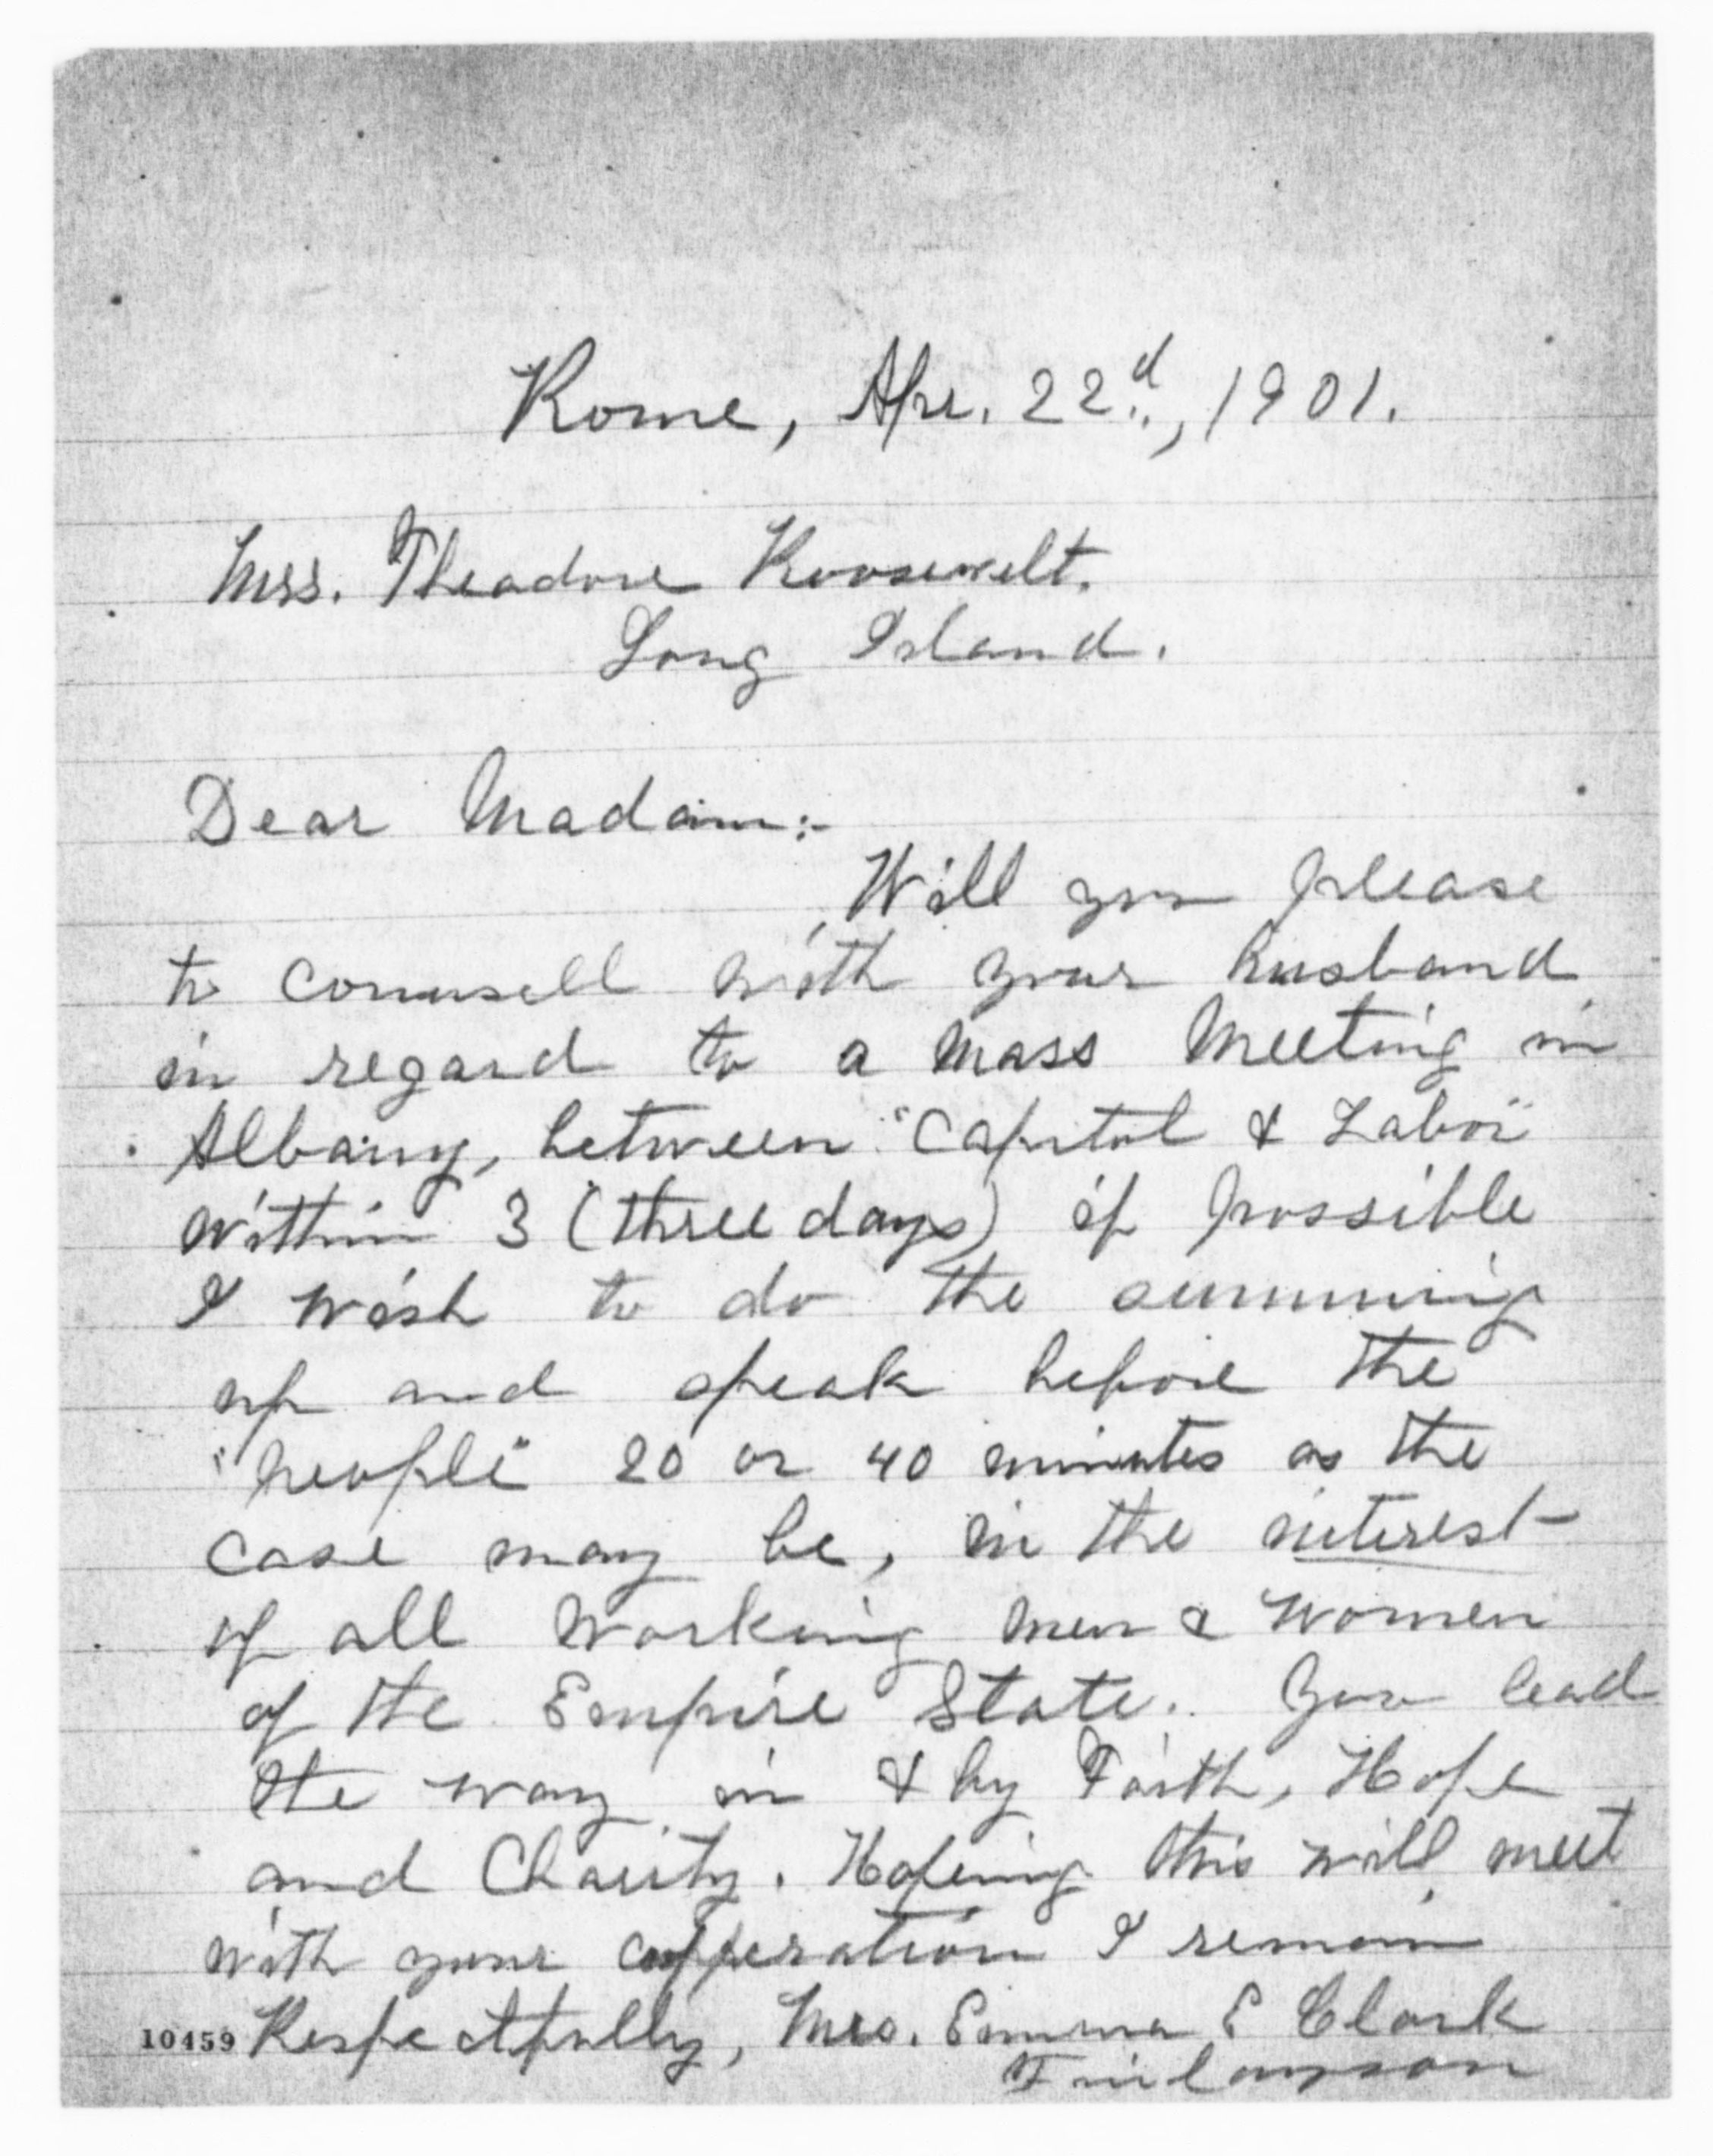 Rome, Apr. 22d, 1901.
Mrs. Theadore Roosevelt.
Long Island.
Dear Madam:-
Will you please
to counsell with your husband
in regard to a Mass Meeting in
Albany, between "Capital & Labor"
within 3 (three days) if possible
I wish to do the summing
up and speak before the
"people" 20 or 40 minutes as the
case may be, in the interest
of all working men & women
of the Empire State. You lead
the way in & by Faith, Hope
and Charity. Hopeing this will meet
with your cooperation I remain
10459 Respectfully, Mrs. Emma E Clark
Finlayson